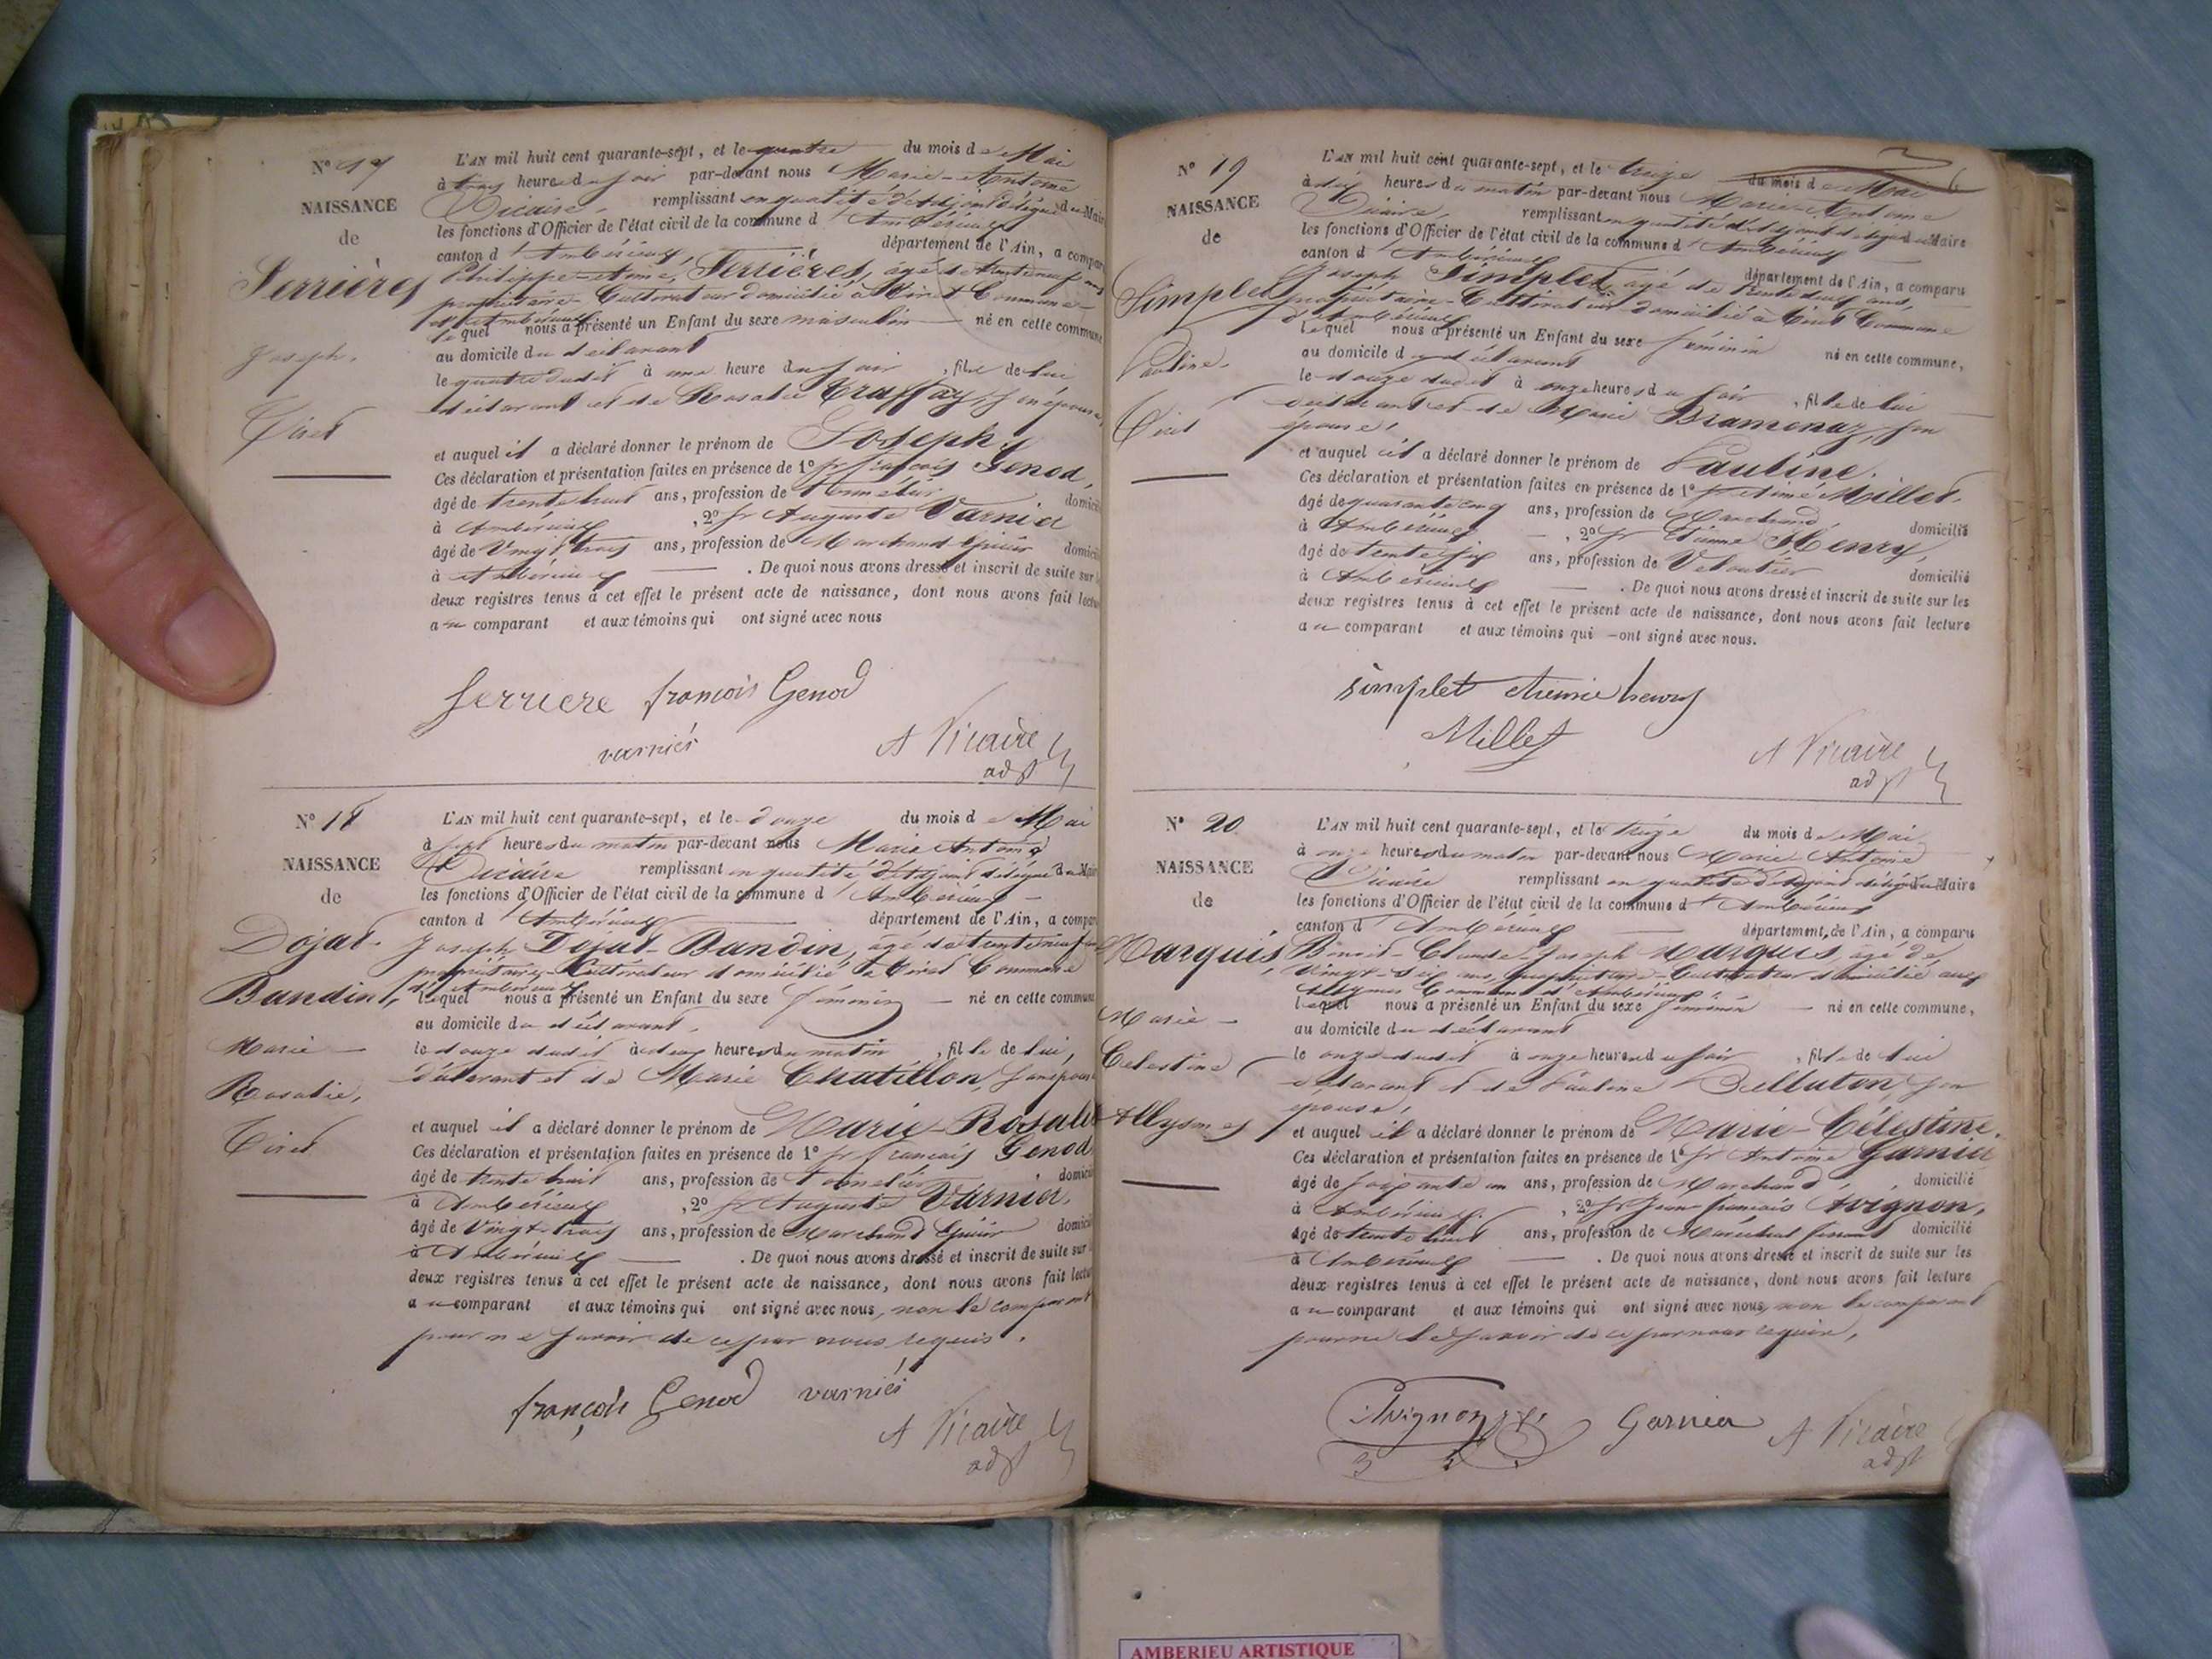 N° 17
NAISSANCE
de
Serrières
Joseph.
Tiret
L'AN mil huit cent quarante-sept, et le quatre du mois de Mai
à trois heures du soir par-devant nous Marie-Antoine
Vicaire, remplissant en qualité d'adjoint délégué du Maire
les fonctions d'Officier de l'état civil de la commune d'Ambérieux
canton d'Ambérieux, département de l'Ain, a comparu
Philippe-Aimé, Serrières, âgé de trente neuf ans
propriétaire-Cultivateur domicilié à Tiret Commune
d'Ambérieux
lequel nous a présenté un Enfant du sexe masculin né en cette commune
au domicile du déclarant
le quatre dudit à une heure du soir, fils de lui
déclarant et de Rosalie Traffay, son épouse,
et auquel il a déclaré donner le prénom de Joseph
Ces déclaration et présentation faites en présence de 1° sr françois Genod,
âgé de trente huit ans, profession de tonnelier domicilié
à Ambérieux, 2° sr Auguste Varnier
âgé de Vingt trois ans, profession de Marchand épicier domicilié
à Ambérieux. De quoi nous avons dressé et inscrit de suite sur
deux registres tenus à cet effet le présent acte de naissance, dont nous avons fait lecture
au comparant et aux témoins qui ont signé avec nous
serriere françois Genod
varnier A Vicaire
adjt
N° 18
NAISSANCE
de
Dojat-
Bandin,
Marie
Rosalie,
Tiret
L'AN mil huit cent quarante-sept, et le douze du mois de Mai
à sept heures du matin par-devant nous Marie Antoine
Vicaire remplissant en qualité d'adjoint délégué du Maire
les fonctions d'Officier de l'état civil de la commune d'Ambérieux
canton d'Ambérieux département de l'Ain, a comparu
Joseph Dojat-Bandin, âgé de trente neuf ans
propriétaire-Cultivateur domicilié à Tiret Commune
d'Ambérieux
lequel nous a présenté un Enfant du sexe féminin né en cette commune
au domicile du déclarant.
le douze dudit à deux heures du matin, fille de lui,
déclarant et de Marie Chatillon, son épouse
et auquel il a déclaré donner le prénom de Marie-Rosalie
Ces déclaration et présentation faites en présence de 1° sr francois Genod
âgé de trente huit ans, profession de tonnelier domicilié
à Ambérieux, 2° sr Auguste Varnier,
âgé de Vingt trois ans, profession de Marchand Epicier domicilié
à Ambérieux. De quoi nous avons dressé et inscrit de suite sur
deux registres tenus à cet effet le présent acte de naissance, dont nous avons fait lecture
au comparant et aux témoins qui ont signé avec nous, non le comparant
pour ne savoir de ce par nous requis.
françois Genod varnier
A Vicaire
adjt
N° 19
NAISSANCE
de
Simplet
Pauline.
Tiret
L'AN mil huit cent quarante-sept, et le treize du mois de Mai
à dix heures du matin par-devant nous Marie-Antoine
Vicaire, remplissant en qualité d'adjoint délégué du Maire
les fonctions d'Officier de l'état civil de la commune d'Ambérieux
canton d'Ambérieux département de l'Ain, a comparu
Joseph Simplet, âgé de trente deux ans,
propriétaire-Cultivateur domicilié à Tiret Commune
d'Ambérieux
lequel nous a présenté un Enfant du sexe féminin né en cette commune,
au domicile du déclarant
le douze dudit à onze heures du soir, fille de lui
déclarant et de Marie Bramonaz, son
épouse,
et auquel il a déclaré donner le prénom de Pauline.
Ces déclaration et présentation faites en présence de 1° sr Aimé Millet.
âgé de quarante cinq ans, profession de Marchand domicilié
à Ambérieux, 2° sr Etienne Henry,
âgé de trente six ans, profession de Veloutier domicilié
à Ambérieux. De quoi nous avons dressé et inscrit de suite sur les
deux registres tenus à cet effet le présent acte de naissance, dont nous avons fait lecture
au comparant et aux témoins qui ont signé avec nous.
simplet etienne henry
Millet
A Vicaire
adjt
N° 20
NAISSANCE
de
Marquis,
Marie
Celestine,
Allymes
L'AN mil huit cent quarante-sept, et le treize du mois de Mai
à onze heures du matin par-devant nous Marie-Antoine
Vicaire remplissant en qualité d'adjoint délégué du Maire
les fonctions d'Officier de l'état civil de la commune d'Ambérieux
canton d'Ambérieux département de l'Ain, a comparu
Benoit-Claude-Joseph Marquis, âgé de
Vingt-six ans, propriétaire-Cultivateur domicilié aux
Allymes Commune d'Ambérieux
lequel nous a présenté un Enfant du sexe féminin né en cette commune,
au domicile du déclarant
le onze dudit à onze heures du soir, fille de lui
déclarant et de Pauline Belluton, son
épouse,
et auquel il a déclaré donner le prénom de Marie-Célestine.
Ces déclaration et présentation faites en présence de 1° sr Antoine Garnier
âgé de soixante un ans, profession de Marchand domicilié
à Ambérieux, 2° sr Jean françois Avignon,
âgé de trente huit ans, profession de Maréchal ferrant domicilié
à Ambérieux. De quoi nous avons dressé et inscrit de suite sur les
deux registres tenus à cet effet le présent acte de naissance, dont nous avons fait lecture
au comparant et aux témoins qui ont signé avec nous, non le comparant
pour ne le savoir de ce par nous requis,
Avignon Garnier A Vicaire
adjt
AMBERIEU ARTISTIQUE